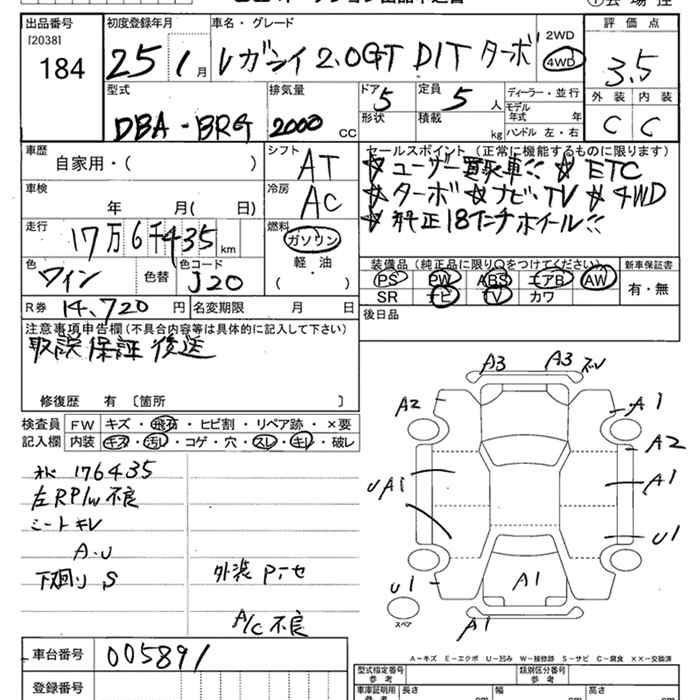 出品番号 初度登録年月 車名・グレード 評価点
[2038] 25 1月 レガシイ 2.0GT DIT ターボ 2WD
184 4WD 3.5
型式 排気量 ドア 定員 ディーラー・並行 外装 内装
DBA-BRG 2000 CC 5 5人 モデル年式 年 C C
形状 積載 kg ハンドル 左・右
車歴 シフト セールスポイント (正常に機能するものに限ります)
自家用・( ) AT ☆ユーザー買取車!! ☆ ETC
車検 冷房 ☆ターボ ☆ナビ・TV ☆4WD
年 月( 日) AC ☆純正18インチホイール!!
走行 燃料
17万6千435km ガソリン
色 色コード 軽・油 装備品 (純正品に限り○をつけてください) 新車保証書
ワイン 色替 J20 ( ) PS PW ABS エアB AW 有・無
SR ナビ TV カワ
R券 14,720円 名変期限 月 日 後日品
注意事項申告欄(不具合内容等は具体的に記入して下さい)
取説保証後送
修復歴 有 [箇所 ]
検査員 FW キズ・飛石・ヒビ割・リペア跡・×要
記入欄 内装 キズ・汚レ・コゲ・穴・スレ・キレ・破レ
176435
左RP/w不良
シートキレ
A・U
下廻り S 外装 P
A/C 不良
A3 A3
A2 A1
A2
UA1 A1
U1
U1 A1
スペア
A1
A-キズ E-エクボ U-凹み W-補修跡 S-サビ C-腐食 ××-交換済
車台番号 005891
登録番号
型式指定番号 参考 類別区分番号 参考
車庫証明用 参考 長さ cm 幅 cm 高さ cm